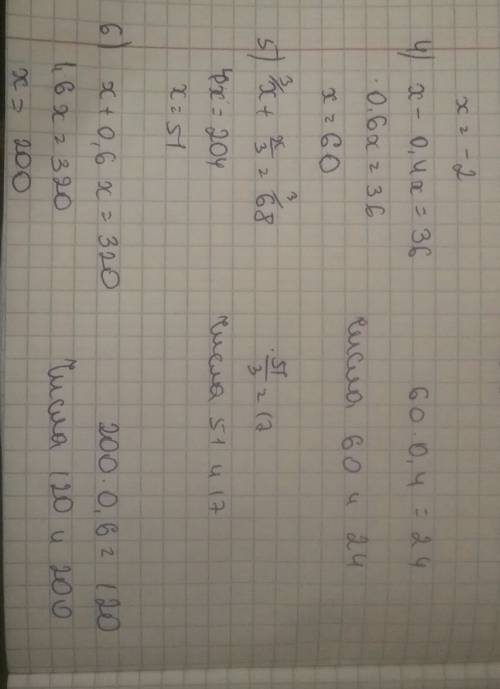 x = -2
4) x - 0,4x = 36 60·0,4 = 24
0,6x = 36
x = 60 числа 60 и 24
5) ³x + x/3 = ³68 51/3 = 17
4x = 204
x = 51 числа 51 и 17
6) x + 0,6x = 320 200·0,6 = 120
1,6x = 320
x = 200 числа 120 и 200